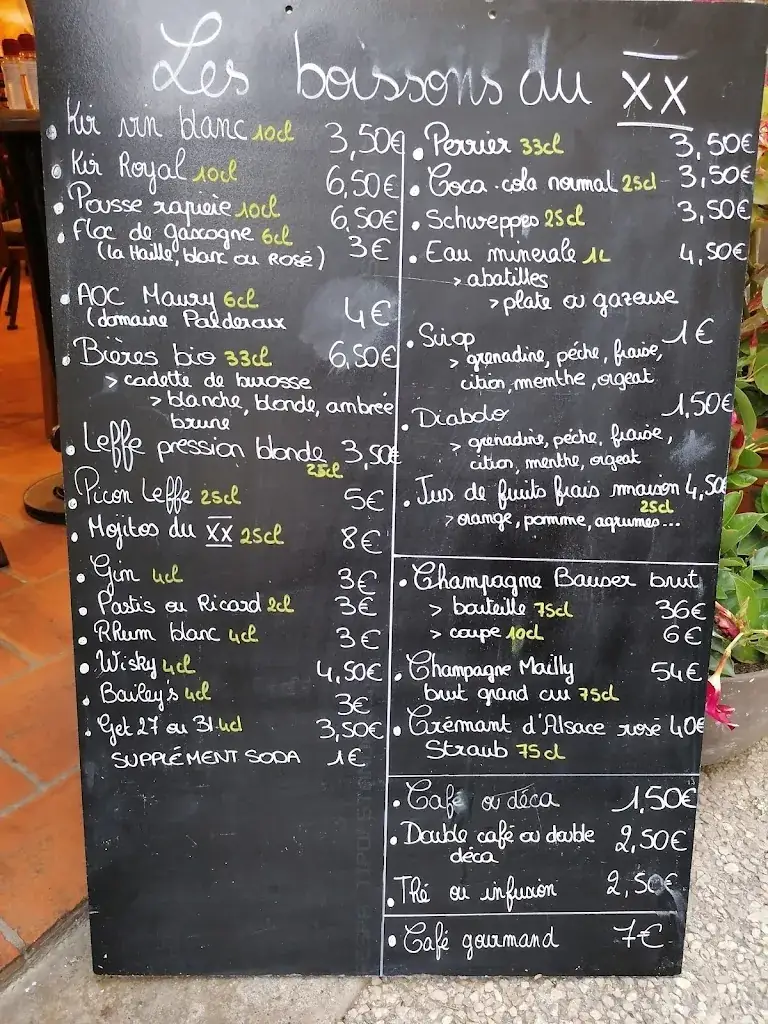 Les boissons du XX
• Kir vin blanc 10cl 3,50€
• Kir Royal 10cl 6,50€
• Pousse rapière 10cl 6,50€
• Floc de gascogne 6cl 3€
(La Haille, blanc ou Rosé)
• AOC Maury 6cl 4€
(domaine Palderoux
• Bières bio 33cl 6,50€
> cadette de burosse
> blanche, blonde, ambrée
brune
• Leffe pression blonde 3,50€
25cl
• Picon Leffe 25cl 5€
• Mojitos du XX 25cl 8€
• Gin 4cl 3€
• Pastis ou Ricard 2cl 3€
• Rhum blanc 4cl 3€
• Wisky 4cl 4,50€
• Bailey's 4cl 3€
• Get 27 ou 31 4cl 3,50€
SUPPLÉMENT SODA 1€
• Perrier 33cl 3,50€
• Coca-cola normal 25cl 3,50€
• Schweppes 25cl 3,50€
• Eau minerale 1L 4,50€
> abatilles
> plate ou gazeuse
• Sirop 1€
> grenadine, pêche, fraise,
citron, menthe, orgeat
• Diabolo 1,50€
> grenadine, pêche, fraise,
citron, menthe, orgeat
• Jus de fruits frais maison 4,50€
25cl
> orange, pomme, agrumes...
• Champagne Bauser brut
> bouteille 75cl 36€
> coupe 10cl 6€
• Champagne Mailly 54€
brut grand cru 75cl
• Crémant d'Alsace rosé 40€
Straub 75cl
• Café ou déca 1,50€
• Double café ou double 2,50€
déca
• Thé ou infusion 2,50€
• Café gourmand 7€